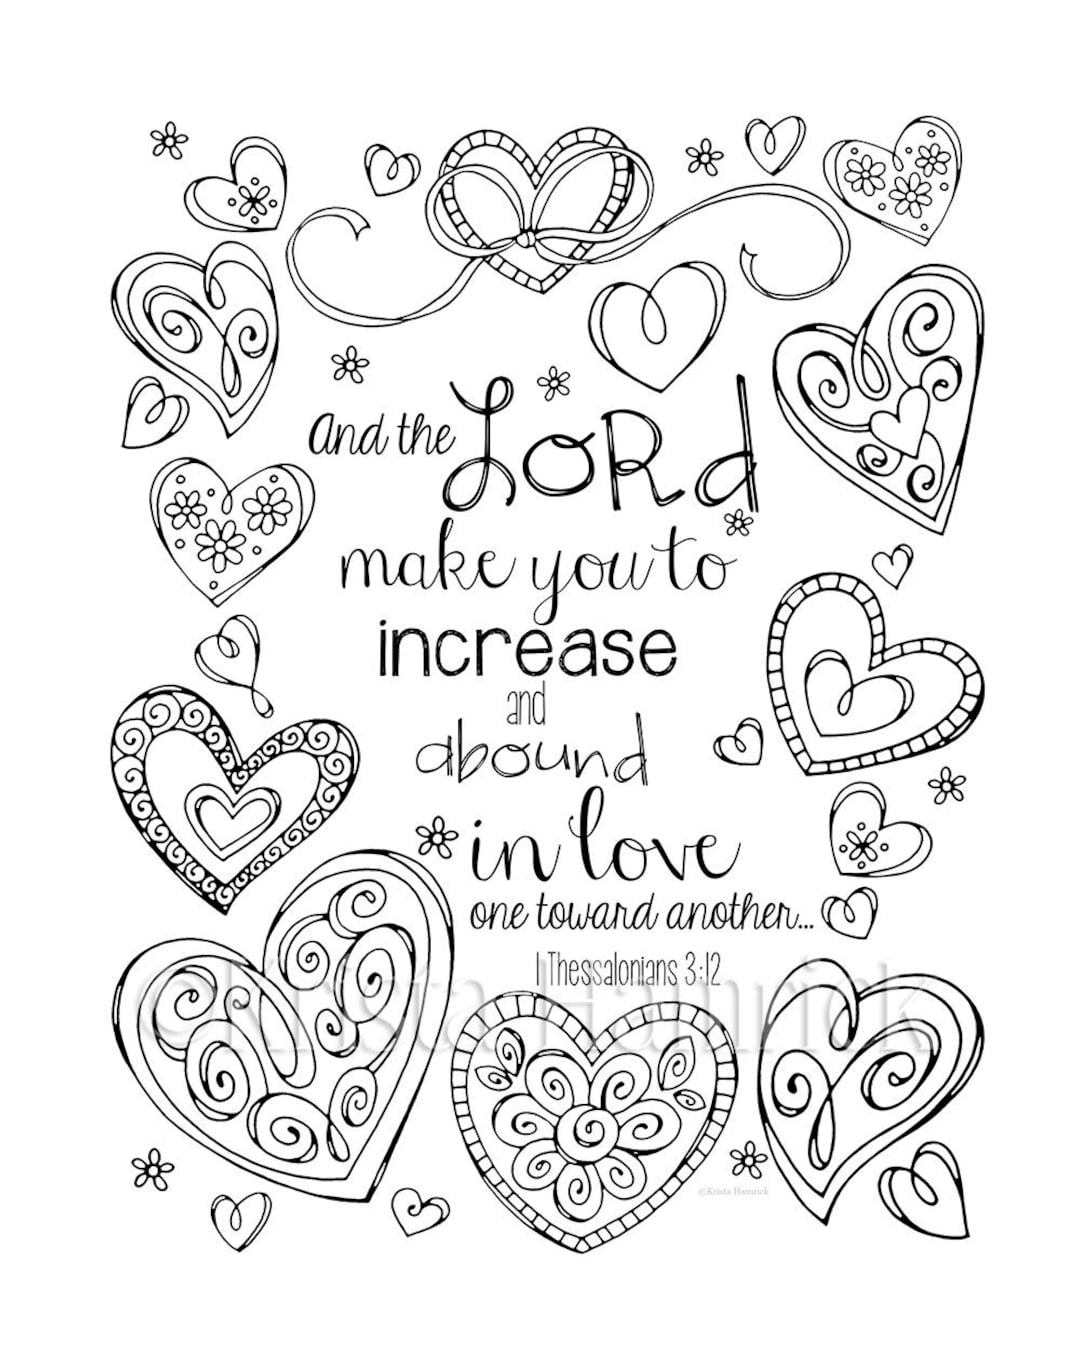 And the LoRd
make you to
increase
and
abound
in love
one toward another...
1 Thessalonians 3:12
©Krista Hamrick
©Krista Hamrick